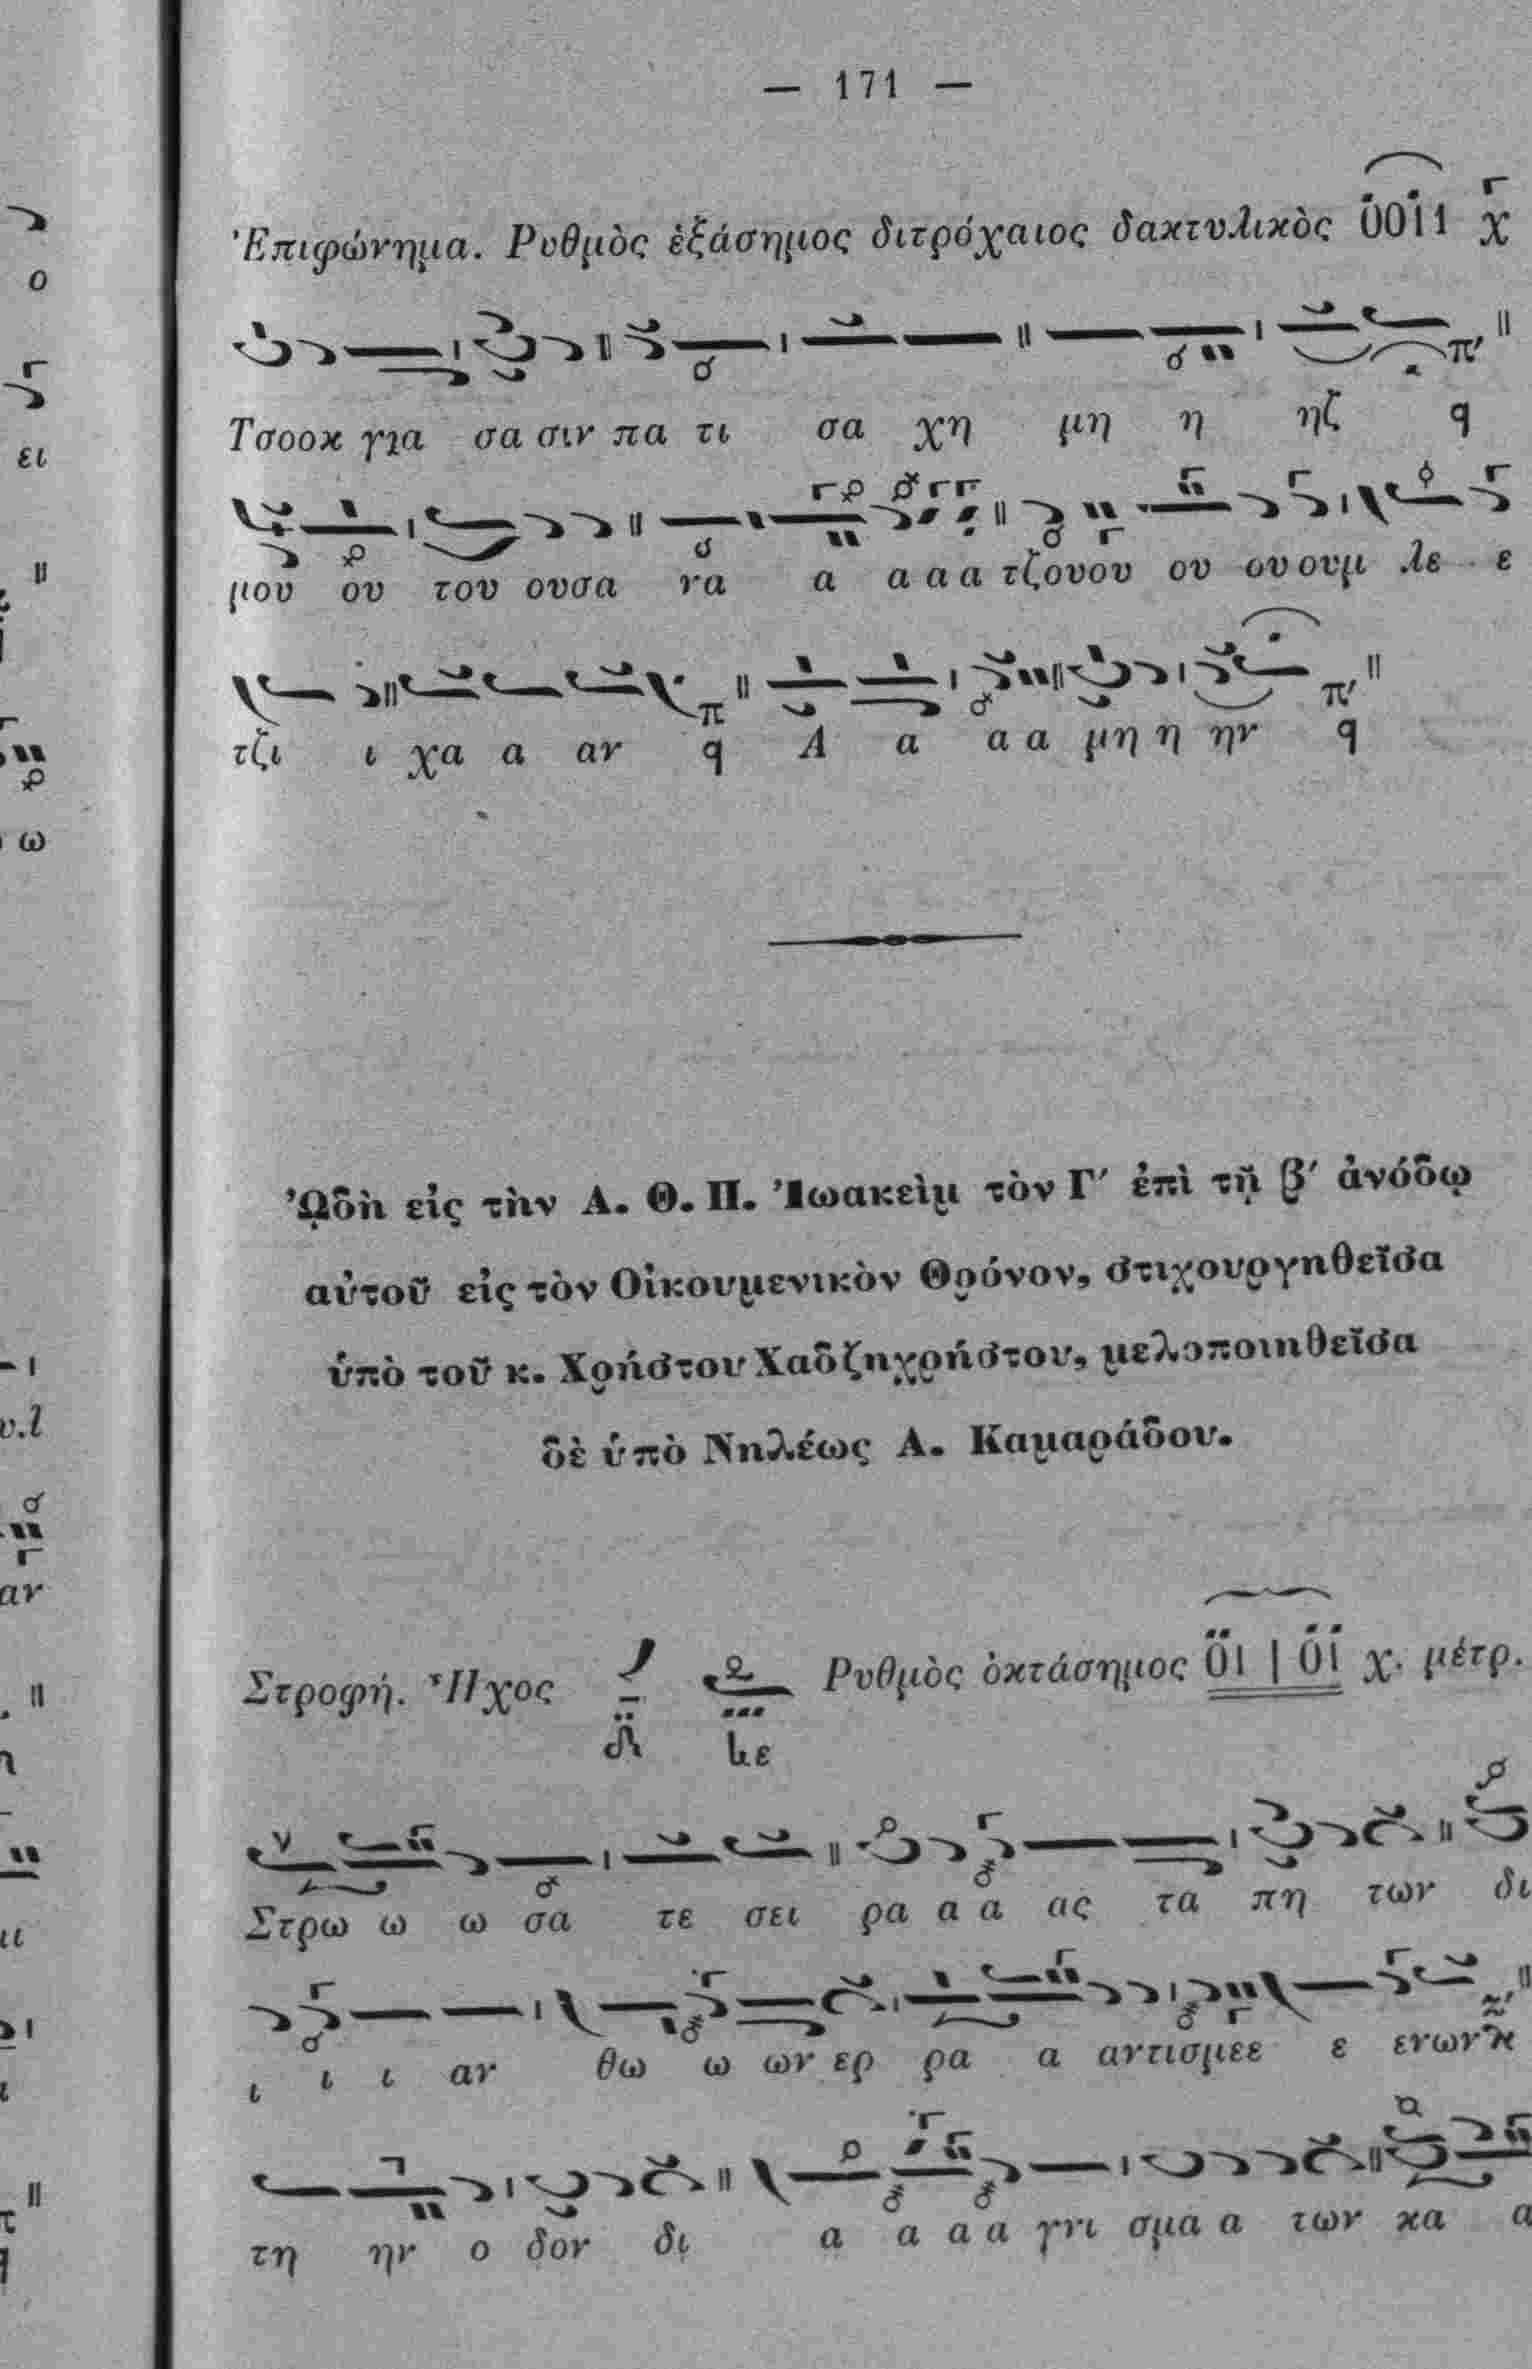 — 171 —
Ἐπιφώνημα. Ρυθμὸς ἑξάσημος διτρόχαιος δακτυλικὸς 0011 χ
Τσοοκ για σα σιν πα τι σα χη μη η ηζ q
μου ου του ουσα να α α α α τζουου ου ου ουμ λε ε
τζι ι χα α αν q Α α α α μη η ην q
ᾨδὴ εἰς τὴν Α. Θ. Π. Ἰωακεὶμ τὸν Γ′ ἐπὶ τῇ β′ ἀνόδῳ
αὐτοῦ εἰς τὸν Οἰκουμενικὸν Θρόνον, στιχουργηθεῖσα
ὑπὸ τοῦ κ. Χρήστου Χαδζηχρήστου, μελοποιηθεῖσα
δὲ ὑπὸ Νηλέως Α. Καμαράδου.
Στροφή. Ἦχος Κε Ρυθμὸς ὀκτάσημος 01 | 01 χ. μέτρ.
Στρω ω ω σα τε σει ρα α α ας τα πη των δι
ι ι ι αν θω ω ων ερ ρα α αντισμεε ε ενων
τη ην ο δον δι α α α α γνι σμα α των κα α